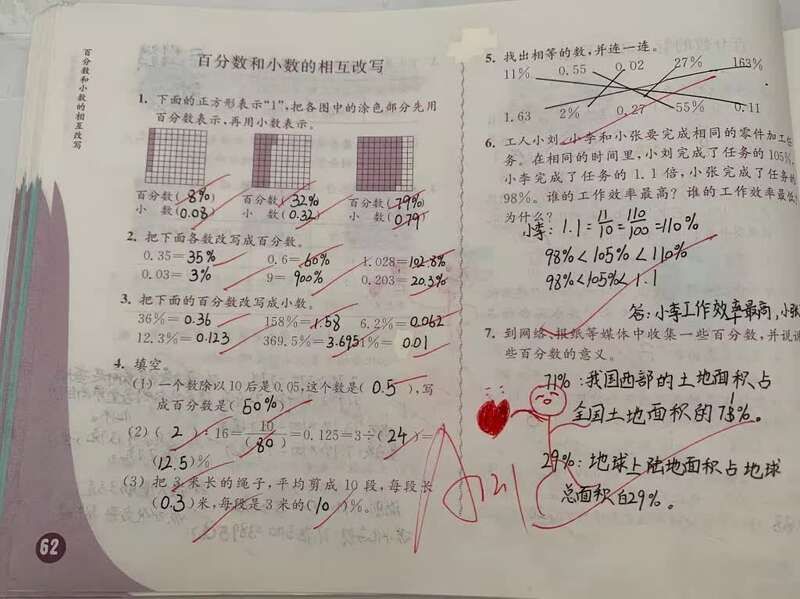 百分数和小数的相互改写
百分数和小数的相互改写
1. 下面的正方形表示“1”,把各图中的涂色部分先用
百分数表示,再用小数表示。
百分数(8%) 百分数(32%) 百分数(79%)
小 数(0.08) 小 数(0.32) 小 数(0.79)
2. 把下面各数改写成百分数。
0.35=35% 0.6=60% 1.028=102.8%
0.03=3% 9=900% 0.203=20.3%
3. 把下面的百分数改写成小数。
36%=0.36 158%=1.58 6.2%=0.062
12.3%=0.123 369.5%=3.695 1%=0.01
4. 填空。
(1) 一个数除以10后是0.05,这个数是(0.5),写
成百分数是(50%)
(2) (2):16=10/(80)=0.125=3÷(24)=
(12.5)%
(3) 把3米长的绳子,平均剪成10段,每段长
(0.3)米,每段是3米的(10)%。
62
5. 找出相等的数,并连一连。
11% 0.55 0.02 27% 163%
1.63 2% 0.27 55% 0.11
6. 工人小刘、小李和小张要完成相同的零件加工任
务。在相同的时间里,小刘完成了任务的105%,
小李完成了任务的1.1倍,小张完成了任务的
98%。谁的工作效率最高?谁的工作效率最低?
为什么?
小李:1.1=11/10=110/100=110%
98%<105%<110%
98%<105%<1.1
答:小李工作效率最高,小张
7. 到网络、报纸等媒体中收集一些百分数,并说说
些百分数的意义。
71%:我国西部的土地面积占
全国土地面积的71%。
29%:地球上陆地面积占地球
总面积的29%。